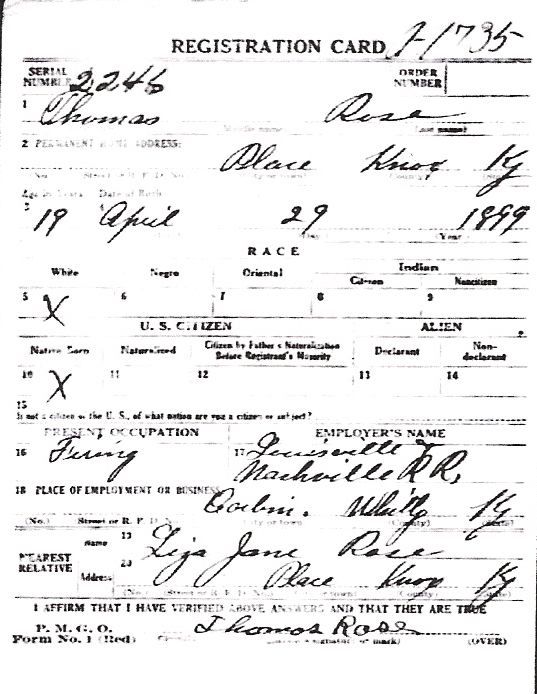 REGISTRATION CARD 1-1735
SERIAL NUMBER 2246 ORDER NUMBER
1 Thomas Rose
Middle name (Last name)
2 PERMANENT HOME ADDRESS:
Place Knox Ky
(No. Street or R. F. D. No.) (City or town) (County) (State)
Age in Years Date of Birth
3 19 4 April 29 1899
Day Year
RACE
White Negro Oriental Indian
Citizen Noncitizen
5 X 6 7 8 9
U. S. CITIZEN ALIEN
Native Born Naturalized Citizen by Father's Naturalization Before Registrant's Majority Declarant Non-declarant
10 X 11 12 13 14
15
If not a citizen of the U. S., of what nation are you a citizen or subject?
PRESENT OCCUPATION EMPLOYER'S NAME
16 Firing 17 Louisville &
Nashville R R.
18 PLACE OF EMPLOYMENT OR BUSINESS
Corbin. Whitly Ky
(No.) Street or R. F. D. No. City or town (County) (State)
NEAREST RELATIVE
Name 19 Liza Jane Rose
Address 20 Place Knox Ky
(No.) (Street or R. F. D. No.) town) (County) (State)
I AFFIRM THAT I HAVE VERIFIED ABOVE ANSWERS AND THAT THEY ARE TRUE
P. M. G. O.
Form No. 1 (Red) Thomas Rose
signature or mark) (OVER)